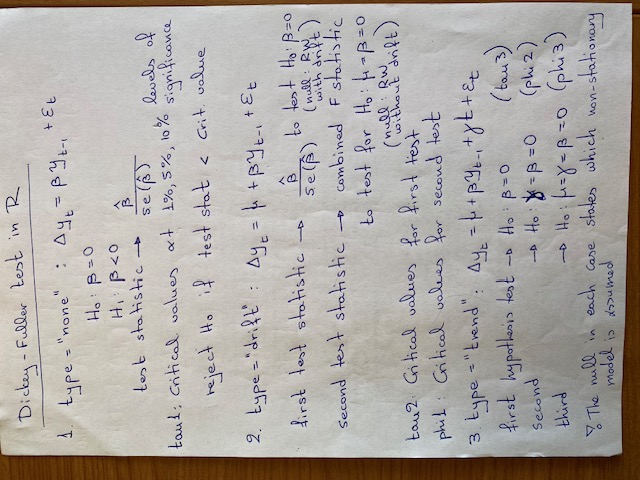 Dickey-Fuller test in R
1. type="none" : Δyₜ = βyₜ₋₁ + εₜ
H₀: β=0
H₁: β<0
test statistic → β̂ / se(β̂)
tau1: Critical values at 1%, 5%, 10% levels of significance
reject H₀ if test stat < Crit. value
2. type="drift" : Δyₜ = μ + βyₜ₋₁ + εₜ
first test statistic → β̂ / se(β̂) to test H₀: β=0
(null: RW with drift)
second test statistic → combined F statistic
to test for H₀: μ=β=0
(null: RW without drift)
tau2: Critical values for first test
phi1: Critical values for second test
3. type="trend" : Δyₜ = μ + βyₜ₋₁ + γt + εₜ
first hypothesis test → H₀: β=0 (tau3)
second → H₀: γ=β=0 (phi2)
third → H₀: μ=γ=β=0 (phi3)
The null in each case states which non-stationary
model is assumed